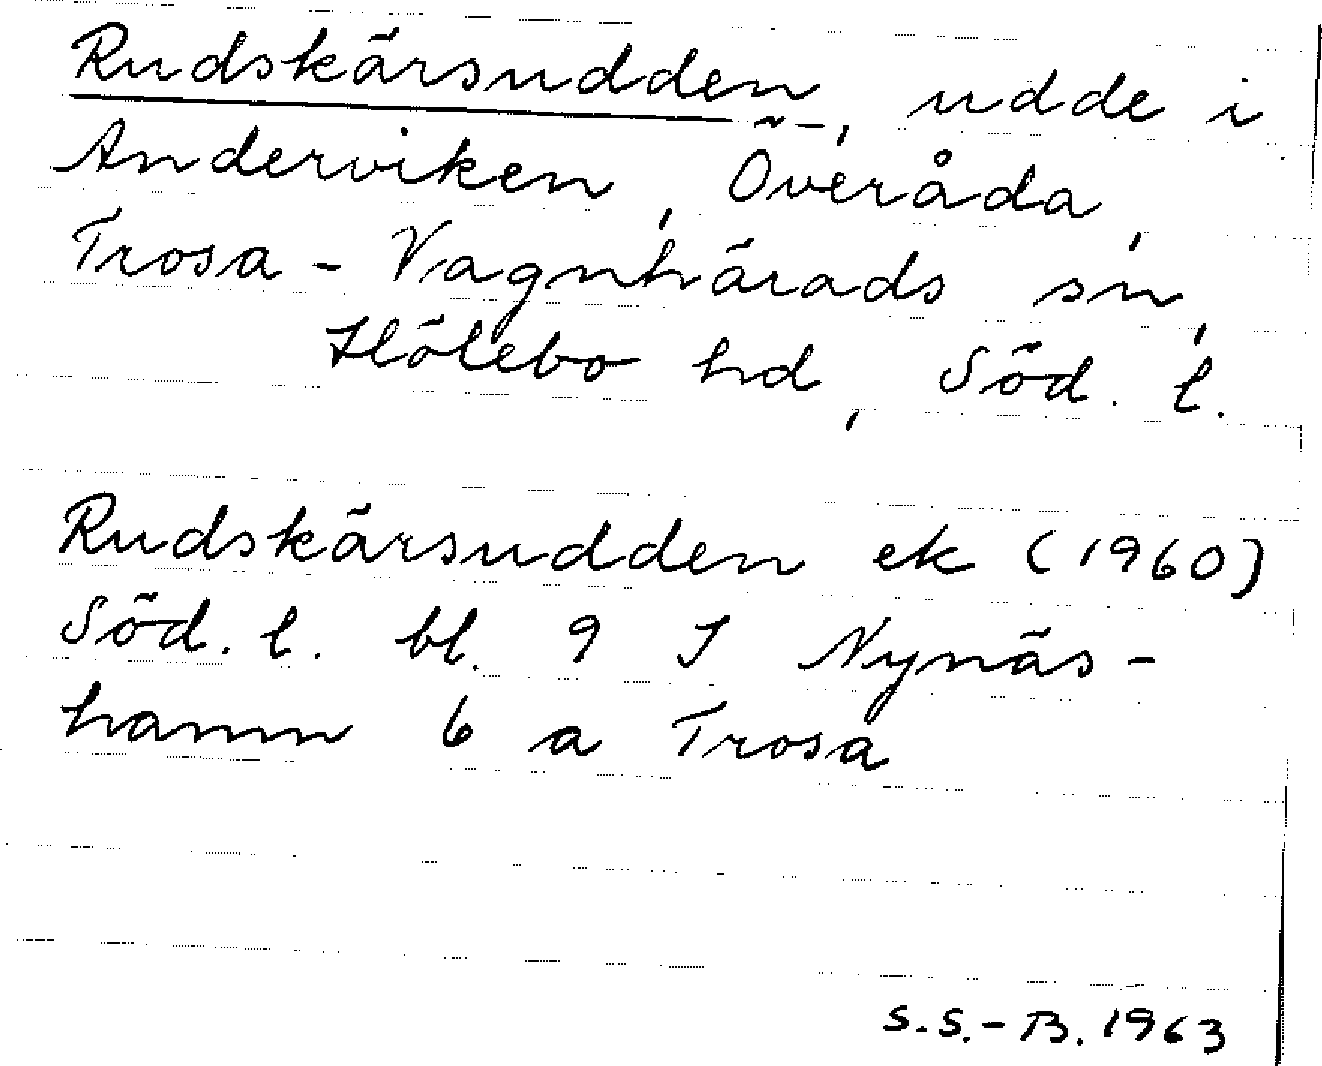 Rudskärsudden, udde i
Anderviken, Överåda,
Trosa - Vagnhärads sn,
Hölebo hd, Söd. l.
Rudskärsudden ek (1960)
Söd. l. bl. 9 I Nynäs-
hamn 6 a Trosa
S.S.-B. 1963